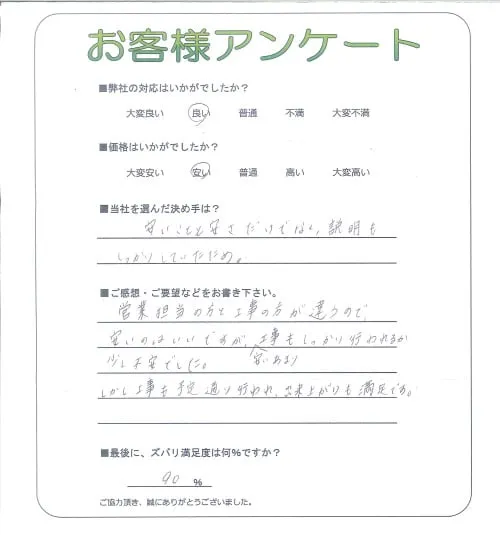 お客様アンケート
■弊社の対応はいかがでしたか？
大変良い 良い 普通 不満 大変不満
■価格はいかがでしたか？
大変安い 安い 普通 高い 大変高い
■当社を選んだ決め手は？
安いことと安さだけでなく、説明も
しっかりしていたため。
■ご感想・ご要望などをお書き下さい。
営業担当の方と工事の方が違うので、
安いのはいいですが、工事もしっかり行われるか
安いあまり
少し不安でした。
しかし工事も予定通り行われ、出来上がりも満足です。
■最後に、ズバリ満足度は何％ですか？
90 ％
ご協力頂き、誠にありがとうございました。